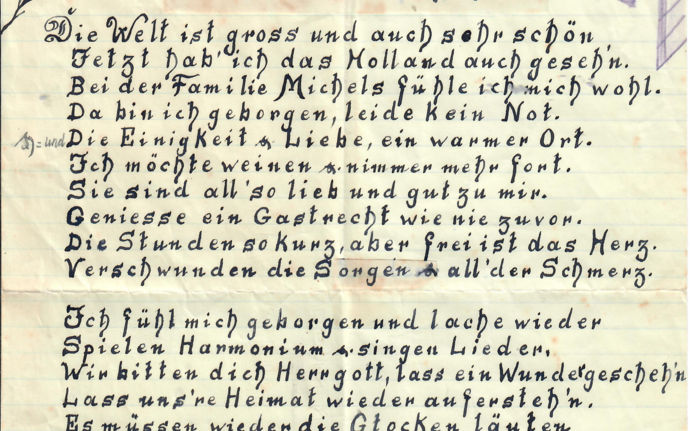 Die Welt ist gross und auch sehr schön
Jetzt hab' ich das Holland auch geseh'n.
Bei der Familie Michels fühle ich mich wohl.
Da bin ich geborgen, leide kein Not.
&=und Die Einigkeit & Liebe, ein warmer Ort.
Ich möchte weinen & nimmer mehr fort.
Sie sind all'so lieb und gut zu mir.
Geniesse ein Gastrecht wie nie zuvor.
Die Stunden so kurz, aber frei ist das Herz.
Verschwunden die Sorgen & all'der Schmerz.
Ich fühl mich geborgen und lache wieder
Spielen Harmonium & singen Lieder,
Wir bitten dich Herrgott, lass ein Wunder gescheh'n
Lass uns're Heimat wieder aufersteh'n.
Es müssen wieder die Glocken läuten